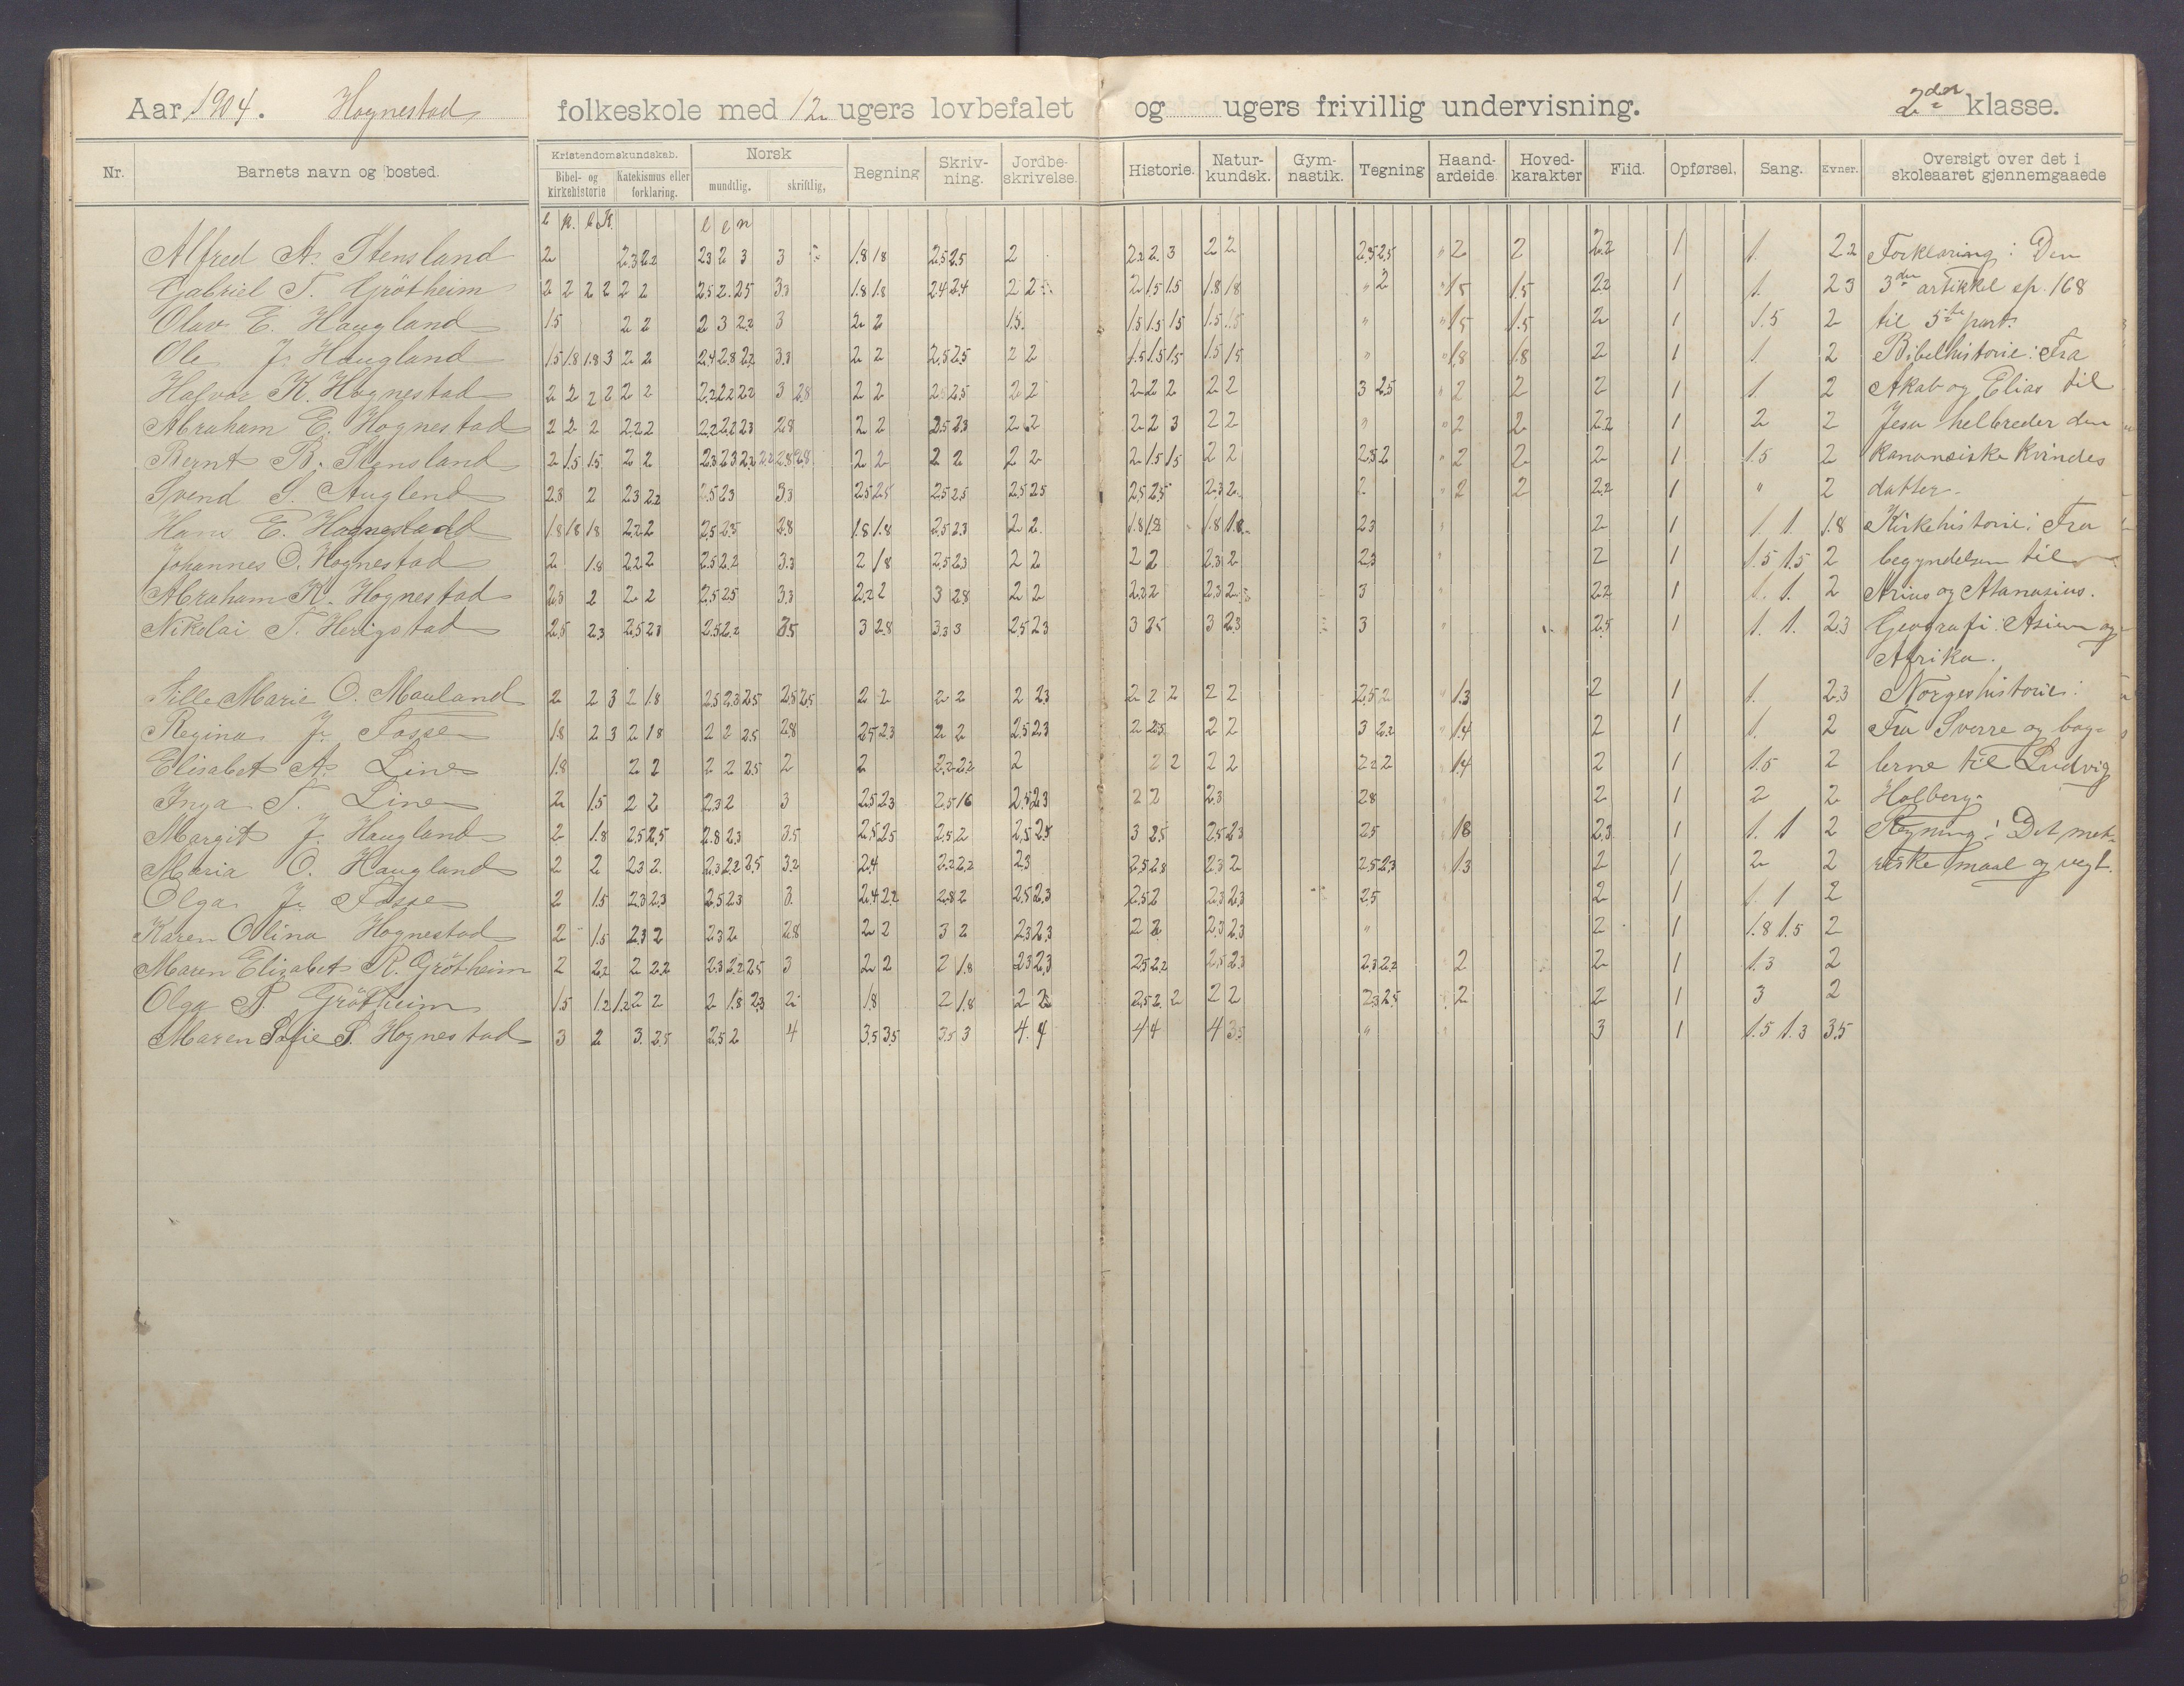 Aar 1904. Hognestad folkeskole med 12 ugers lovbefalet og ugers frivillig undervisning. 2den klasse.
Nr. Barnets navn og bosted. Kristendomskundskab. Norsk Regning Skriv-ning. Jordbe-skrivelse. Historie. Natur-kundsk. Gym-nastik. Tegning Haand-ardeide Hoved-karakter Flid. Opførsel. Sang. Evner. Oversigt over det i skoleaaret gjennemgaaede
Bibel- og kirkehistorie Katekismus eller forklaring. mundtlig. skriftlig,
Alfred A. Stensland 2 2.3 2.2 2.3 2 3 3 1.8 1.8 2.5 2.5 2 2.2 2 3 2 2 2.5 2.5 " 2 2 2.2 1 1. 2.2 Forklaring: Den
Gabriel T. Grötheim 2 2 2 2 2 2 2.5 2 2.5 3.3 1.8 1.8 2.4 2.4 2 2 2 1.5 1.5 1.8 1.8 " 2 " 1.5 1.5 2.2 1 1. 2.3 3die artikkel sp. 168
Olav E. Haugland 1.5 2 2 2 3 2.2 3 2 2 1.5 1.5 1.5 1.5 1.5 1.5 " " 1.5 1.5 2 1 1.5 2 til 5te part.
Ole J. Haugland 1.5 1.8 1.8 3 2 2 2.4 2.8 2.2 3.3 2 2 2.5 2.5 2 2 1.5 1.5 1.5 1.5 1.5 " " 1.8 1.8 2 1 1. 2 Bibelhistorie: Fra
Halvar K. Hognestad 2 2 2 2 2 2 2.2 2.2 2.2 3 2.8 2 2 2 2.5 2 2 2 2 2 2 2 3 2.5 " 2 2 2 1 1. 2 Akab og Elias til
Abraham E. Hognestad 2 2 2 2.2 2 2.2 2.2 2.3 2.8 2 2 2.5 2.3 2 2 2 2 3 2 2 " " 2 2 2.2 1 2 2 Jesu helbreder den
Bernt B. Stensland 2 1.5 1.5 2 2 2.3 2.3 2.2 2.2 2.8 2.8 2 2 2 2 2 2 2 1.5 1.5 2 2 2.5 2 " 2 2 2 1 1.5 2 kananæiske kvindes
Svend S. Auglend 2.8 2 2.3 2.2 2.5 2.3 3.3 2.5 2.5 2.5 2.5 2.5 2.5 2.5 2.5 2.3 2 2 " 2 2 2.2 1 " 2 datter.
Hans E. Hognestad 1.8 1.8 1.8 2.2 2 2.5 2.3 2.8 1.8 1.8 2.5 2.3 2 2 1.8 1.8 1.8 1.8 2.3 " 2 1 1. 1 1.8 Kirkehistorie: Fra
Johannes O. Hognestad 2 1.8 2.2 2 2.5 2.2 3.3 2 1.8 2.5 2.3 2 2 2 2 2.3 2 2.3 " 2 1 1.5 1.5 2 begyndelsen til
Abraham K. Hognestad 2.3 2 2 2 2.5 2.5 3.3 2.2 2 3 2.8 2 2 2.2 2 2.3 2 3 " 2.2 1 1. 1. 2 Arius og Atanasius.
Nikolai T. Herigstad 2.5 2.3 2.5 2.3 2.5 2.2 3.5 3 2.8 3.3 3 2.5 2.3 3 2.5 3 2.3 3 " 2.5 1 1. 1. 2.3 Geografi: Asien og
Afrika.
Sille Marie O. Mauland 2 2 3 2 1.8 2.5 2.3 2.5 2.5 2.5 2 2 2 2 2 2.3 2 2 2 2 2 2.5 2 " 1.3 2 1 1. 2.3 Norgeshistorie:
Regina J. Fosse 1.8 2 3 2 1.8 2 2 2.5 2.8 2.5 2.3 2 2 2.5 2.3 2 2.5 2 2 3 2.2 " 1.4 2 1 1. 2 Fra Sverre og bag-
Elisabet A. Line 1.8 2 2 2 2 2.5 2 2 2.2 2.2 2 2 2 2 2 2.2 2 " 1.4 2 1 1.5 2 lerne til Ludvig
Inga T. Line 2 1.5 2 2 2.3 2 3 2.5 2.3 2.5 1.6 2.5 2.3 2 2 2.3 2.8 " 2 1 2 2 Holberg.
Margit J. Haugland 2 1.8 2.5 2.5 2.8 2.3 3.5 2.5 2.5 2.5 2 2.5 2.5 3 2.5 2.5 2.3 2.5 " 1.8 2.3 1 1. 1 2 Regning: Det met-
Maria O. Haugland 2 2 2.3 2 2.3 2.2 2.5 3.2 2.4 2.2 2.2 2.3 2.5 2.8 2.3 2 2.5 2.3 " 1.3 2 1 2 2 riske maal og vegt.
Olga J. Fosse 2 1.5 2.3 2.3 2.5 2.3 3 2.4 2.2 2.8 2 2.5 2.3 2.5 2 2.3 2.3 2.5 2 1 1. 1 2
Karen Olina Hognestad 2 1.5 2.3 2 2.3 2 2.8 2 2 3 2 2.3 2.3 2 2 2.3 2.3 " 2 1 1.8 1.5 2
Maren Elisabet R. Grötheim 2 2.2 2 2.2 2.3 2.2 2.5 3 2 2 2 1.8 2.3 2.3 2.5 2.2 2.5 2.3 2.3 2.2 2 2 1 1.3 2
Olga A. Grötheim 1.5 1.2 1.2 2 2 2 1.8 2.3 2 1.8 2 1.8 2 2 2.5 2 2 2 2 2.3 2.5 2 2 1 3 2
Maren Sofie S. Hognestad 3 2 3 2.5 2.5 2 4 3.5 3.5 3.5 3 4 4 4 4 4 3.5 " 3 1 1.5 1.3 3.5